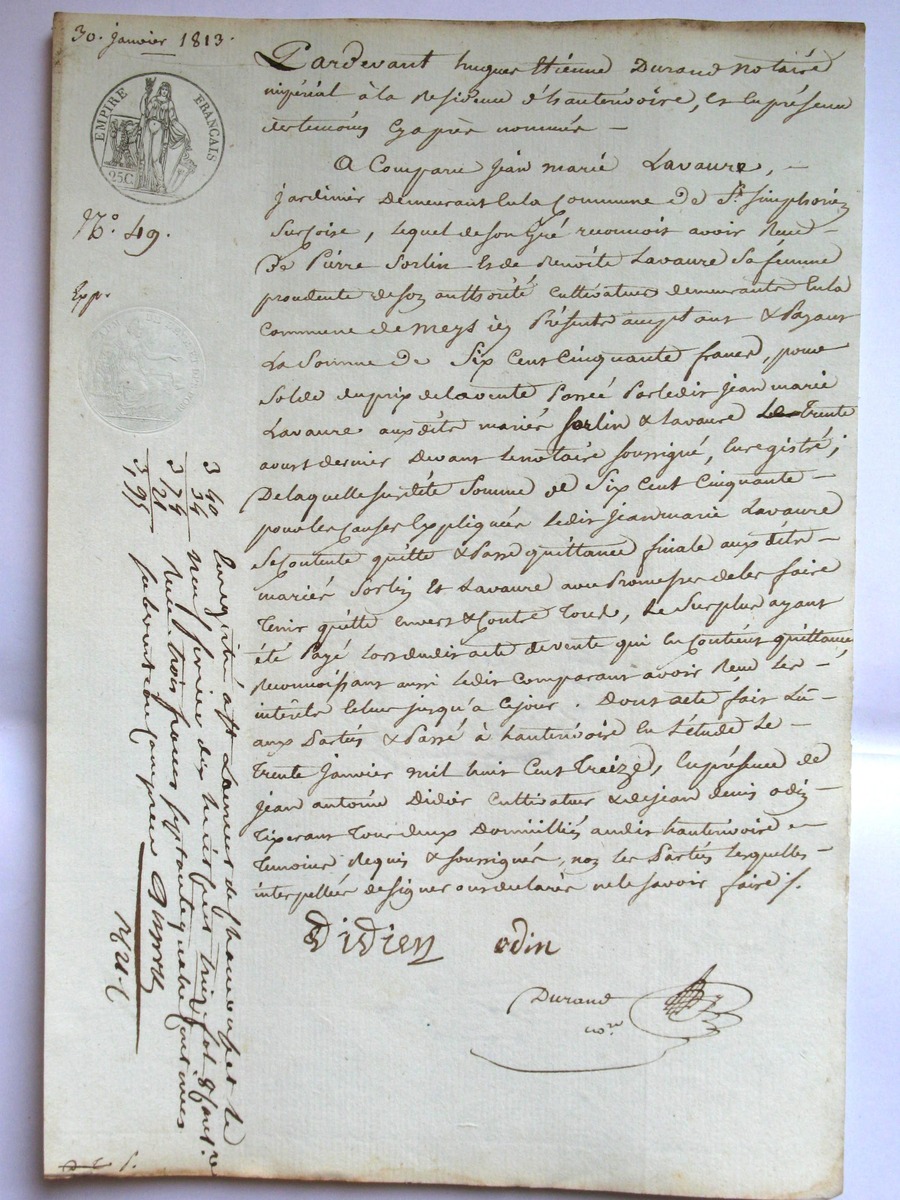 30. janvier 1813.
EMPIRE FRANÇAIS
25C
N.o 49.
Exp.
Pardevant hugues Etienne Durand Notaire
impérial à la Residence d'hauterivoire, et en présence
des temoins Cy après nommés —
A Comparu Jean marie Lavaure, —
jardinier Demeurant En la Commune de St. Simphorien
Sur Coise, lequel de son Gré reconnoit avoir Recu —
De Pierre Sorlin Et de Benoîte Lavaure Sa femme
procedente de son authorité cultivateurs demeurants En la
Commune de Meys icy Présents acceptant & Payant
La Somme de Six Cent Cinquante francs, pour
Solde du prix de la vente Passée Par ledit Jean marie
Lavaure aux dits mariés Sorlin & Lavaure Le Trente
aoust dernier Devant le notaire soussigné, Enregistré;
De laquelle susdite Somme de Six Cent Cinquante —
pour les Causes Expliquées ledit Jean marie Lavaure
Se Contente quitte & Passe quittance finale aux dits —
mariés Sorlin Et Lavaure avec Promesse de les faire
Tenir quitte Envers & Contre Tous, Le Surplus ayant
été Payé lors dudit acte de vente qui En Contient quittance
Reconnoissant aussi ledit Comparant avoir Recu Les —
intérêts Echus jusqu'à Ce jour. Dont acte fait Lu —
aux Parties & Passé à hauterivoire En L'étude Le —
Trente Janvier mil huit Cent Treize, En présence de
Jean antoine Didier Cultivateur & de Jean denis odin
Tixerant Tous deux Domiciliés audit hauterivoire —
Temoins Requis & Soussignés, non les Parties lesquelles —
interpellées de signer ont déclaré ne le savoir faire ./.
Didier odin
Durand
no.re
Enregistré à St Laurent de Chamousset le
neuf fevrier dix huit cent treize fol. 8
Recu trois francs soixante quatorze
subvention comprise
3 40
34
3 74
21
3 95